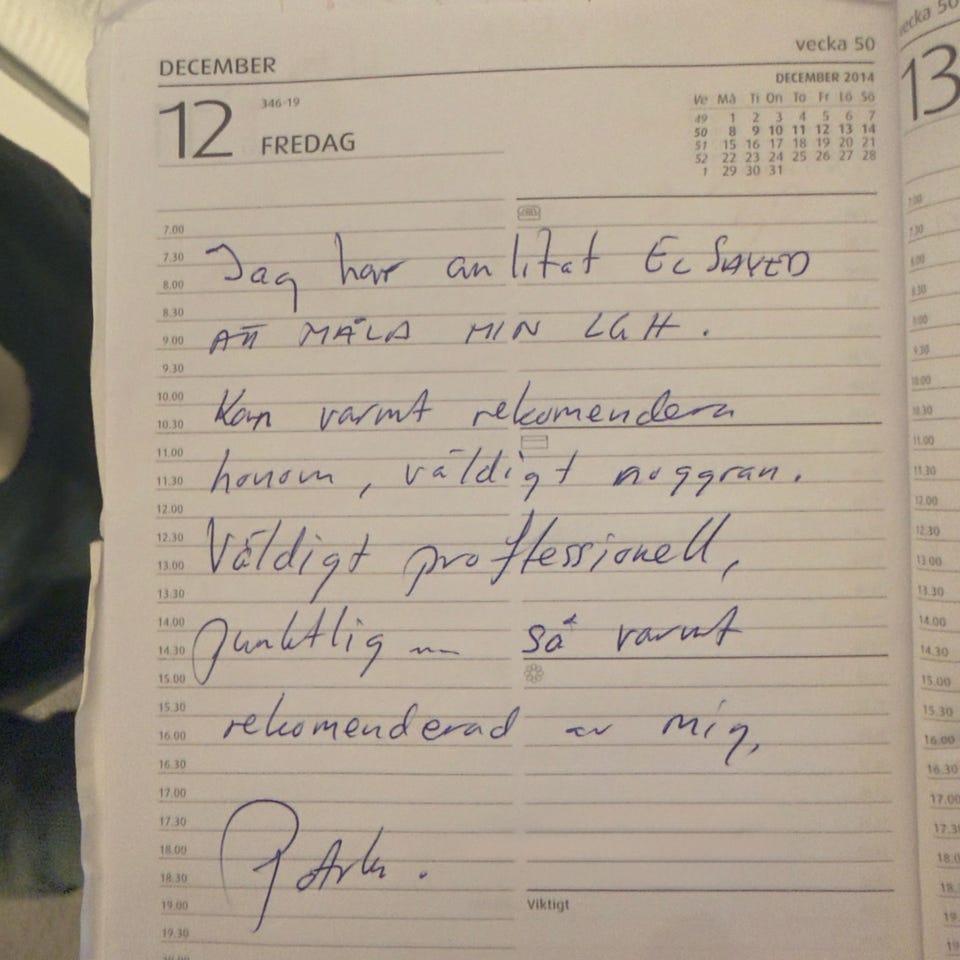 DECEMBER
vecka 50
12
346-19
FREDAG
DECEMBER 2014
Ve Må Ti On To Fr Lö Sö
49 1 2 3 4 5 6 7
50 8 9 10 11 12 13 14
51 15 16 17 18 19 20 21
52 22 23 24 25 26 27 28
1 29 30 31
7.00
7.30
8.00
8.30
9.00
9.30
10.00
10.30
11.00
11.30
12.00
12.30
13.00
13.30
14.00
14.30
15.00
15.30
16.00
16.30
17.00
17.30
18.00
18.30
19.00
19.30
Jag har anlitat EL SAYED
ATT MÅLA MIN LGH.
Kan varmt rekomendera
honom, väldigt noggran.
Väldigt proffessionell,
punktlig så varmt
rekomenderad av mig,
Viktigt
vecka 50
13
7.00
7.30
8.00
8.30
9.00
9.30
10.00
10.30
11.00
11.30
12.00
12.30
13.00
13.30
14.00
14.30
15.00
15.30
16.00
16.30
17.00
17.3
18.0
18.
19
19